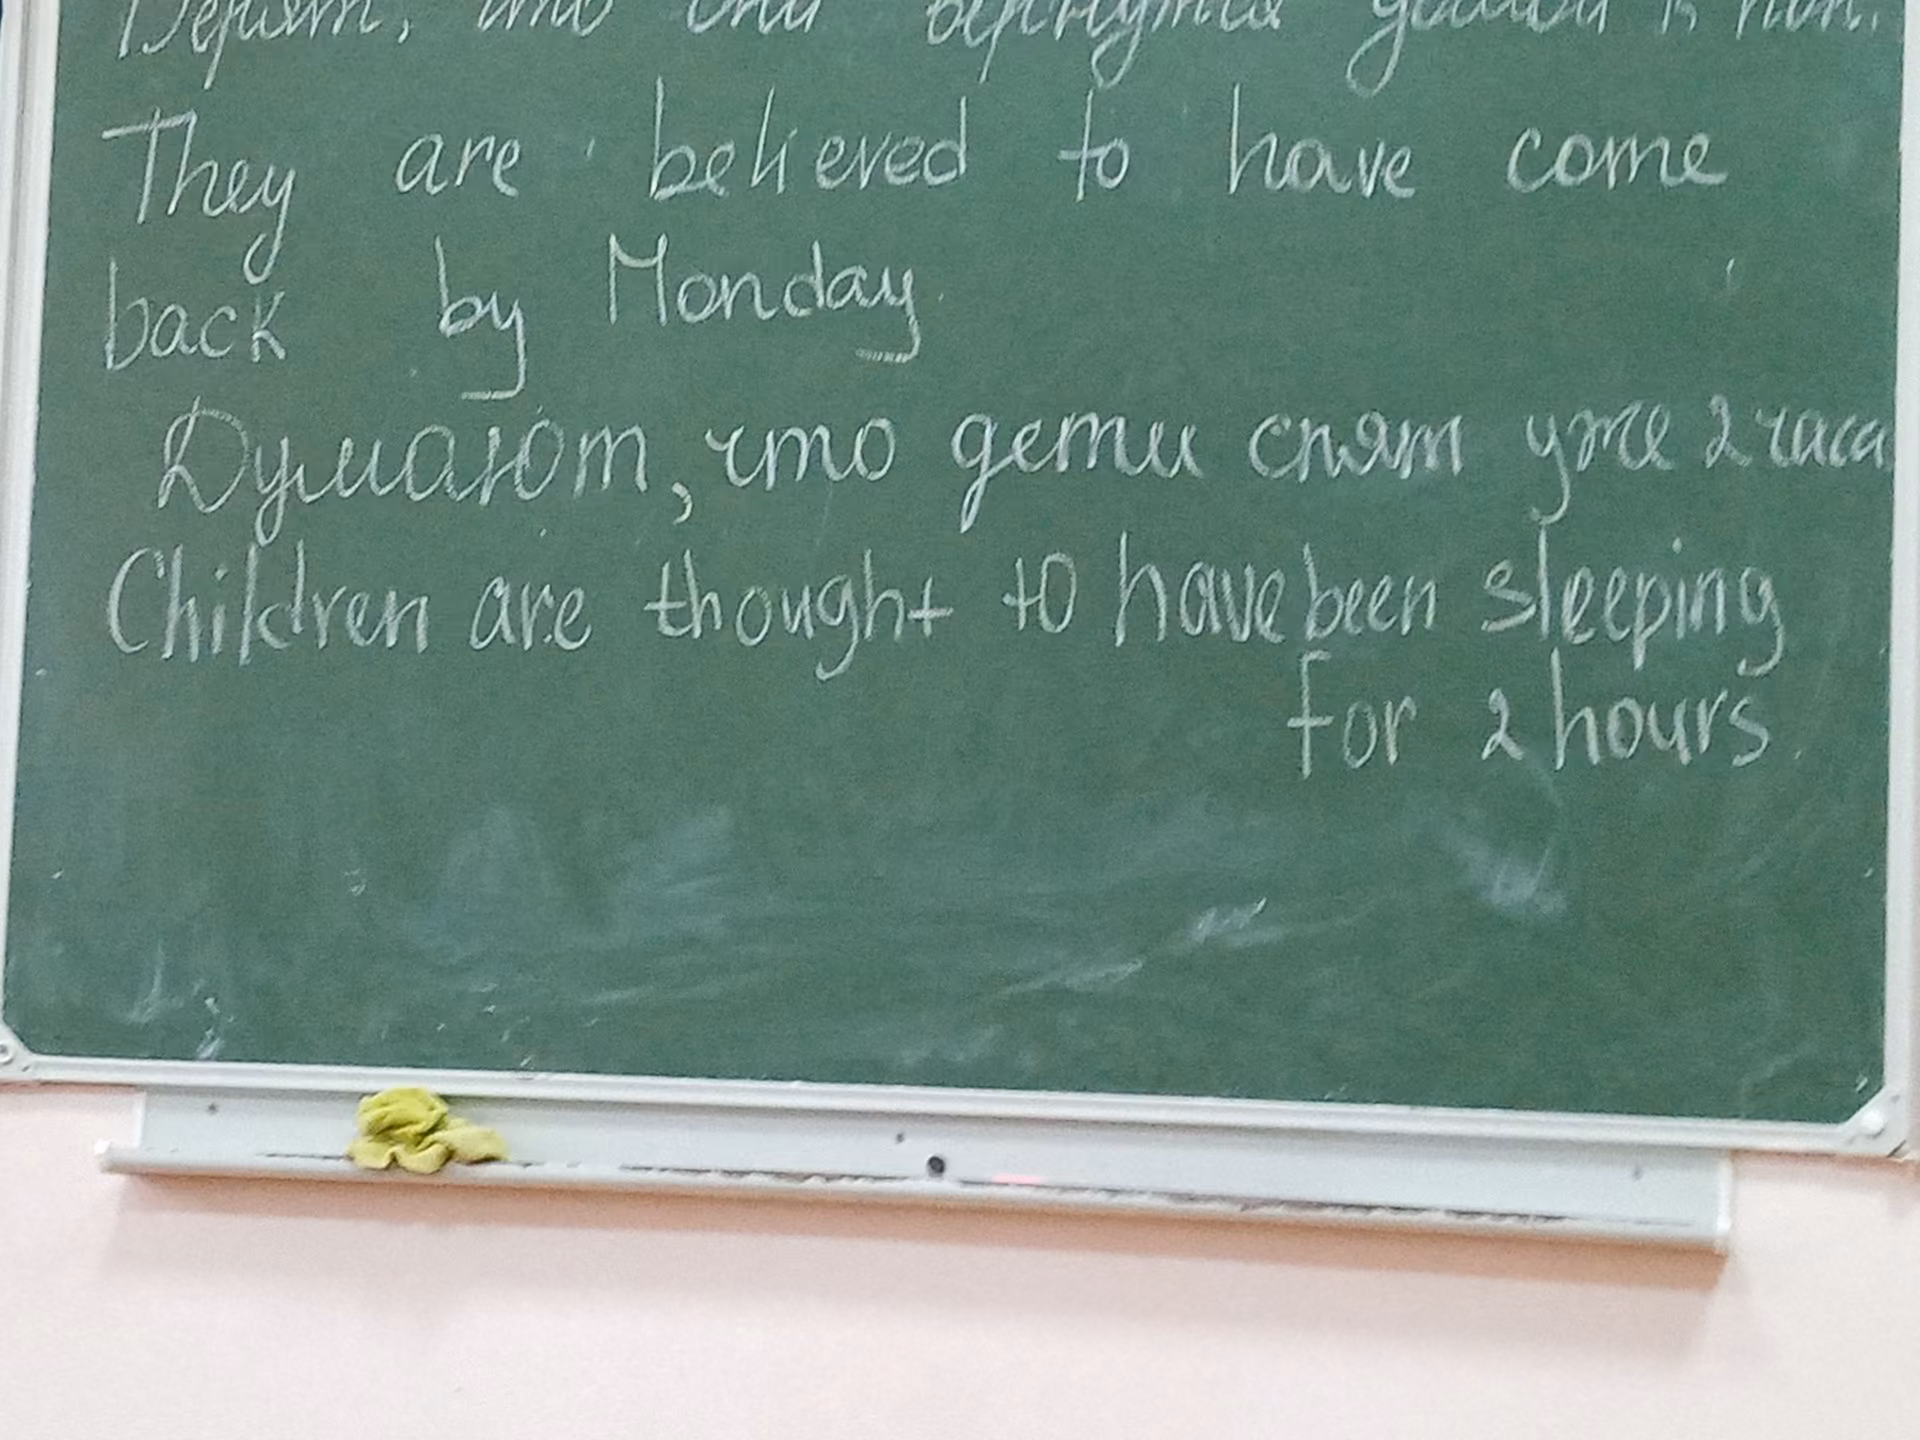 Верят, что они вернутся домой к пон.
They are believed to have come
back by Monday.
Думают, что дети спят уже 2 часа.
Children are thought to have been sleeping
for 2 hours.